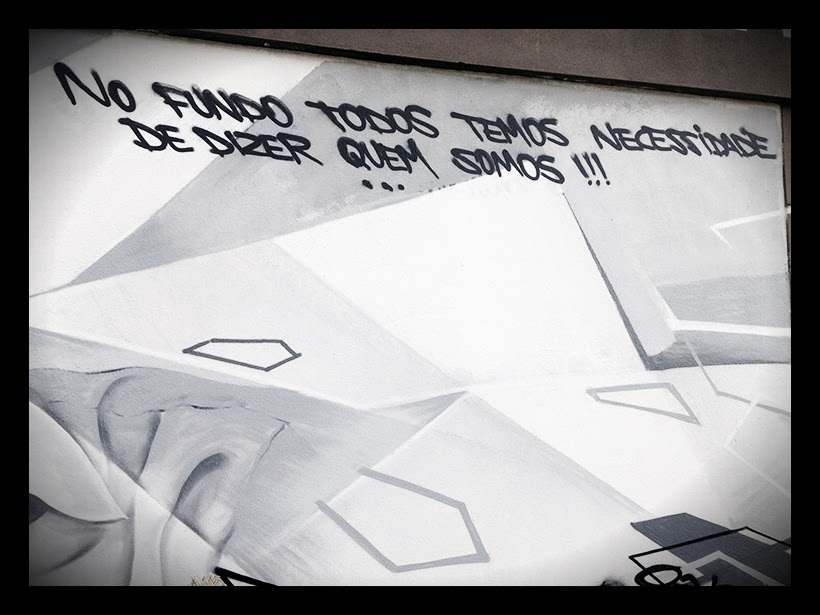 NO FUNDO TODOS TEMOS NECESSIDADE
DE DIZER QUEM SOMOS !!!
...